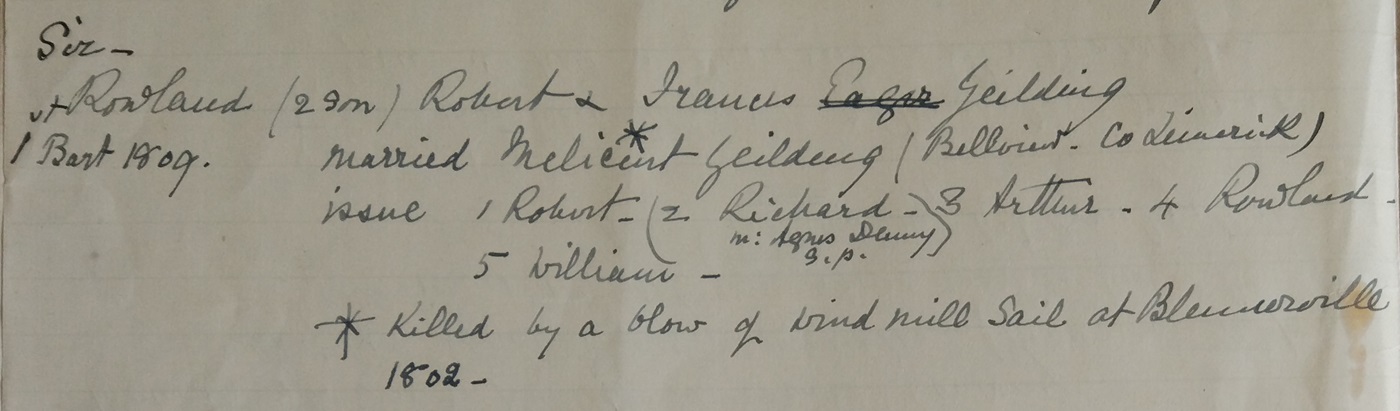 Sir -
Rowland (2 son) Robert & Frances Eager Yeilding
1st Bart 1809. married Melicent* Yeilding (Bellview. Co Limerick)
issue 1 Robert - (2 Richard -) 3 Arthur - 4 Rowland -
m: Agnes Denny
s.p.
5 William -
* Killed by a blow of wind mill Sail at Blennerville
1802 -